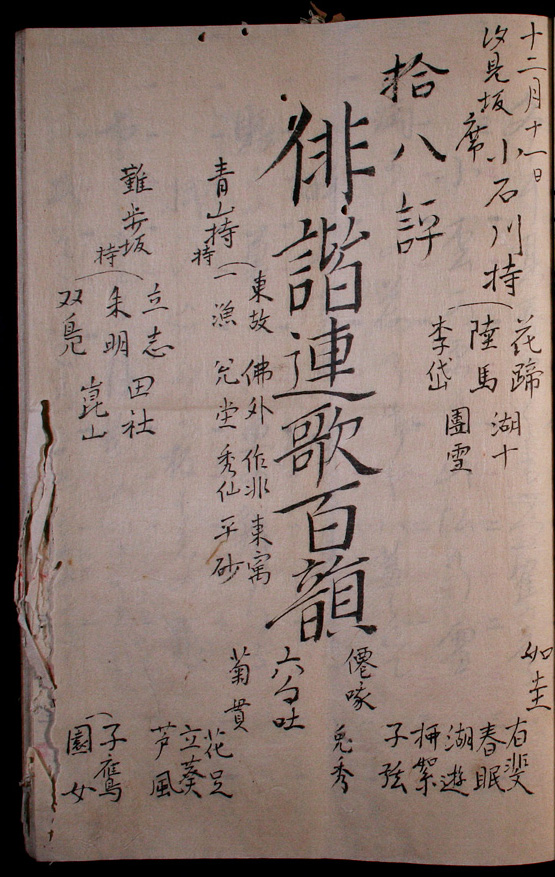 十二月十一日
汐見坂席
小石川持
花蹄 湖十
陸馬 團雪
李岱
拾八評
俳諧連歌百韻
東故 佛外 作非 東寓
青山持
持
一漁 兊堂 秀仙 平砂
立志 田社
朱明 崑山
双鳧
難歩坂
持
如圭
有斐
春眠
湖遊
柳絮
子弦
僊喙
兎秀
六句吐
菊貫
花足
立葵
芦風
子鷹
園女